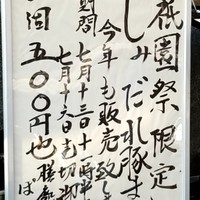 祇園祭限定
しみだれ豚ま
今年も販売致しま
期間 七月十三日十一時半
七月十六日売切
一個 五〇〇円也
膳處
ぽ